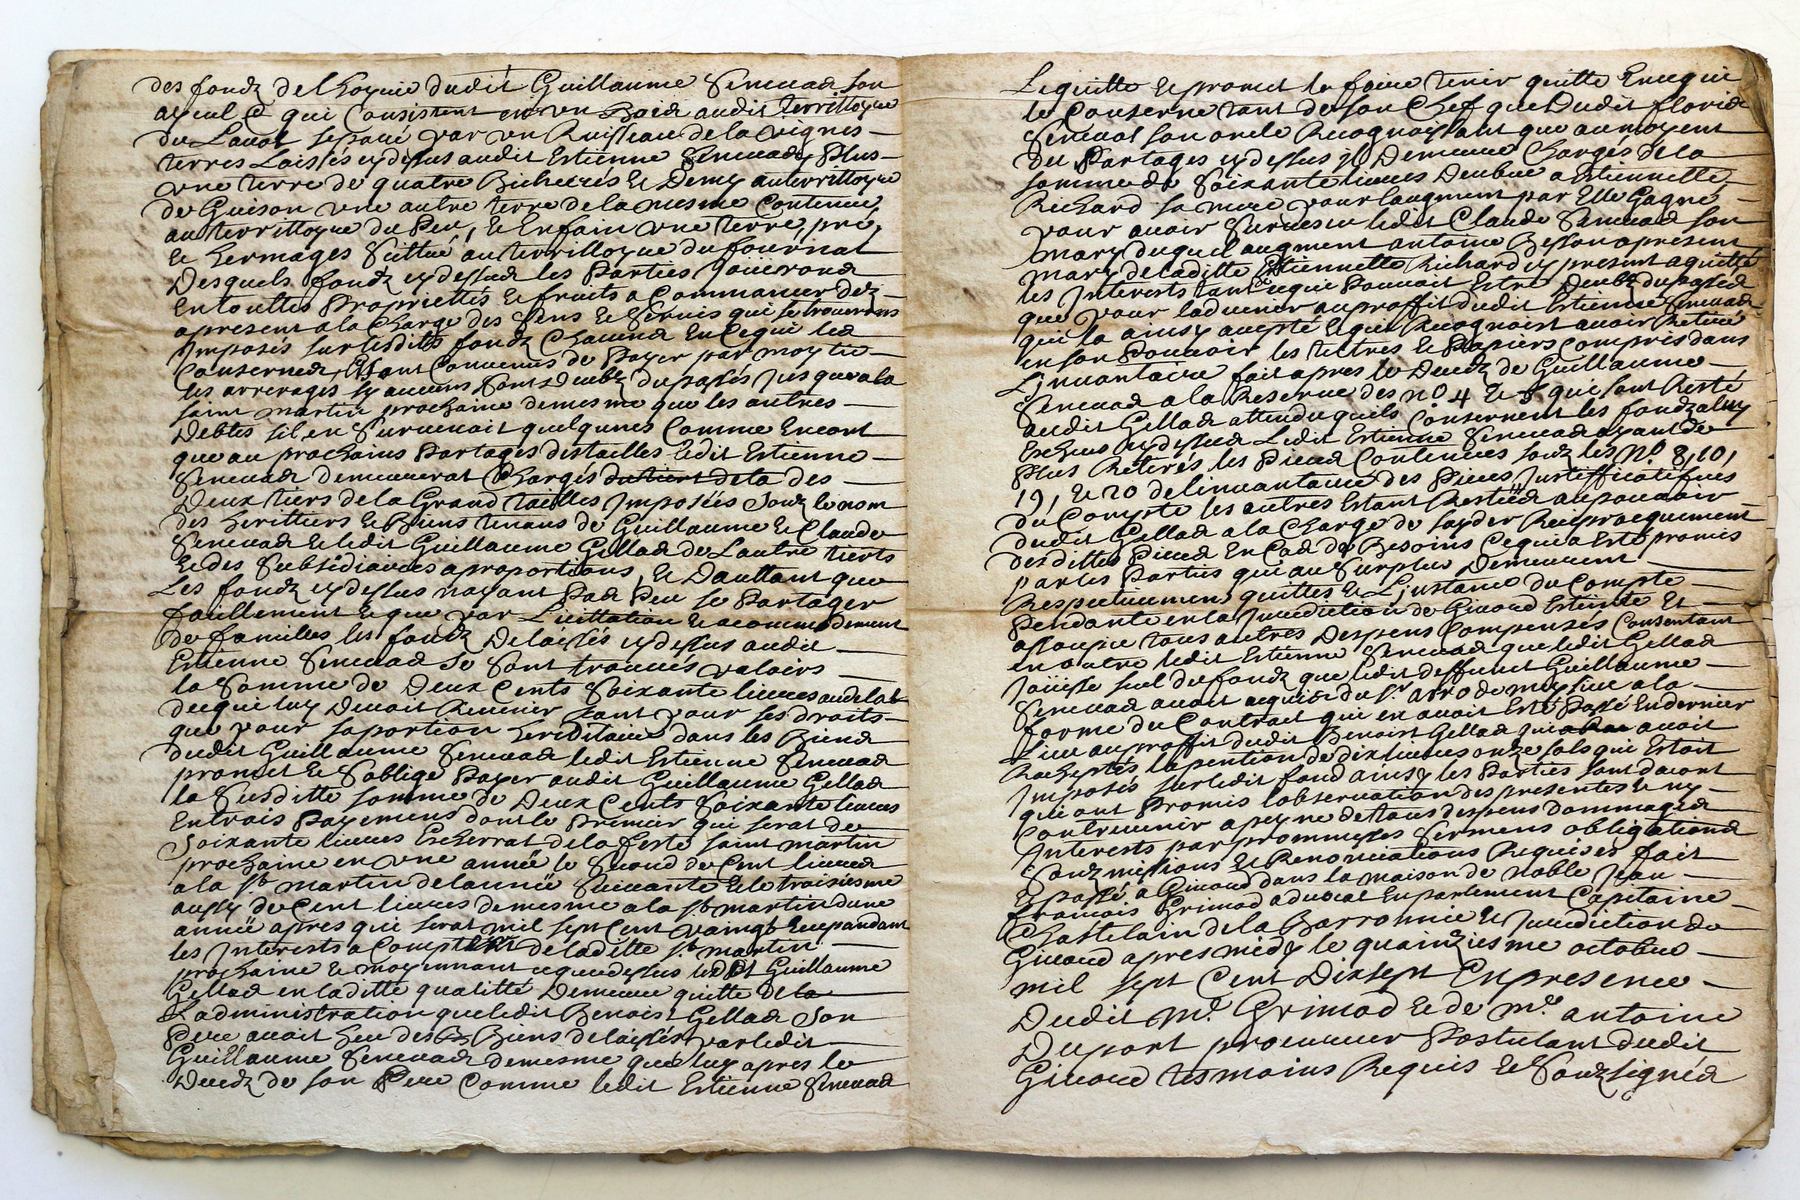 des fondz de lhoyrie dudit Guillaume Seneuad son
ayeul Ce qui Consistent en vn Bois audit Territtoyre
du Lauol separé par vn Ruisseau de la vignes
terres Laissés cydessus audit Estienne Seneuad, Plus
vne terre de quatre Bicherés Et Demy auterrittoyre
de Guison vne autre terre de la mesme Contenue,
au territtoyre du Peu, Et Enfain vne terre, pré,
Et hermages Scittué au territtoyre du fournat
Desquels fondz cydessus les Parties Joüiront
En touttes Proprietés Et fruits a Commancer dez
apresent a la Charge des Sens Et Seruis qui se trouueront
Imposés sur lesdits fondz Chacuns En Cequi les
Conserne, Estant Conuenus de Payer par moytié
les arrerages sy aucuns sont deubz du passés Jusques a la
saint martin prochaine demesme que les autres
Debtes sil en Suruenoit quelqunes Comme Encort
que au prochains Partages destailles ledit Estienne
Seneuad demeurerat Chargés du tiert de la des
Deux tiers de la Grand tailles Imposées Souz le nom
des herittiers Et Biens tenans de Guillaume Et Claude
Seneuad Et ledit Guillaume Gellad de Lautre tierts
Et des Subsidiaires a proportions, Et Daultant que
Les fondz cydessus nayant Pas Peu se Partager
faisllement Et que par Licittation Et acommodement
de familles les fondz Delaissés cydessus audit
Estienne Seneuad se sont trouués valoirs
la Somme de Deux Cents Soixante liures audelat
decequi luy Deuoit Reuenir tant pour ses droits
que pour sa portion hereditaire dans les Biens
dudit Guillaume Seneuad ledit Estienne Seneuad
promet Et Soblige Payer audit Guillaume Gellad
la Susditte somme de Deux Cents Soixante liures
En trois Payemens dont le Premier qui serat de
Soixante liures Escherrat de la feste saint martin
prochaine en vne année le Second de Cent liures
a la St martin de lannée Suiuante Et le troisiesme
aussy de Cent liures demesme a la St martin dune
année apres qui serat mil sept Cent vaingt Et cependant
les Interests a Compter de laditte St martin
prochaine Et moyennant ceque dessus ledit Guillaume
Gellad en laditte qualitté Demeure quitte de la
Ladministration que ledit Benoist Gellad Son
Pere auoit heu des Biens delaissés par ledit
Guillaume Seneuad demesme que luy apres le
Deceds de son Pere Comme ledit Estienne Seneuad
Lequitte Et promet le faire tenir quitte En ce qui
le Conserne tant de son Chef que Dudit floris
Seneuad son oncle Recognoissant que au moyent
des Partages cydessus jl Demeure Chargés de la
somme de Soixante liures Deube a Estiennette
Richard sa mere pour laugment par Elle Gagné
pour auoir Suruescu ledit Claude Seneuad son
mary duquel augment antoine Besson apresent
mary de laditte Estiennette Richard cy present a quitté
les Interests tant ceque Pouuoit Estre Deubz du passé
que pour laduenir auproffit dudit Estienne Seneuad
qui la ainsy accepté Et que Recognoist auoir Retiré
en son Pouuoir les tiltres Et Papiers Compris dans
Linuantaire fait apres le Deceds de Guillaume
Seneuad a la Reserue des no 4 Et 5 qui sont Resté
audit Gellad attendu quils Consernent les fondz a luy
Escheus cydessus Ledit Estienne Seneuad ayant de
Plus Retirés les Pieces Contenues souz les No 8, 10,
19, Et 20 de linuantaire des Pieces Justifficatifues
du Compte les autres Estant Restées au pouuoir
dudit Gellad a la Charge de sayder Reciproquement
desdittes Pieces En Cas de Besoins Cequi a Esté promis
par les Parties qui au Surplus Demeurent
Respectiuement quittes Et Linstance du Compte
Pendante en la Jurediction de Giraud Esteinte Et
assoupie tous autres Despens Compensés Consentant
en outre ledit Estienne Seneuad que ledit Gellad
Joüisse seul du fondz que ledit deffunct Guillaume
Seneuad auoit acquis du Sr arrodemoysiue a la
forme du Contrat qui en auoit Esté Passé En dernier
Lieu au proffit dudit Benoist Gellad qui auoit
Rachepté la pention de dix liures onze sols qui Estoit
Imposés sur ledit fond ainsy les Parties sont dacort
qui ont Promis lobseruation des presentes Et ny
Contreuenir a peyne de tous despens dommages
Interests par prommesses Sermens obligations
Souzmissions Et Renonciations Requises fait
Et passé a Giraud dans la maison de Noble Jean
francois Grimod aduocat En parlement Capitaine
Chastelain de la Barronnie Et Jurediction de
Giraud apres midy le quainziesme octobre
mil sept Cent Dix sept En presence
Dudit Mr Grimod Et de Mre antoine
Duport procureur Postulant dudit
Giraud tesmoins Requis Et Souzsignés